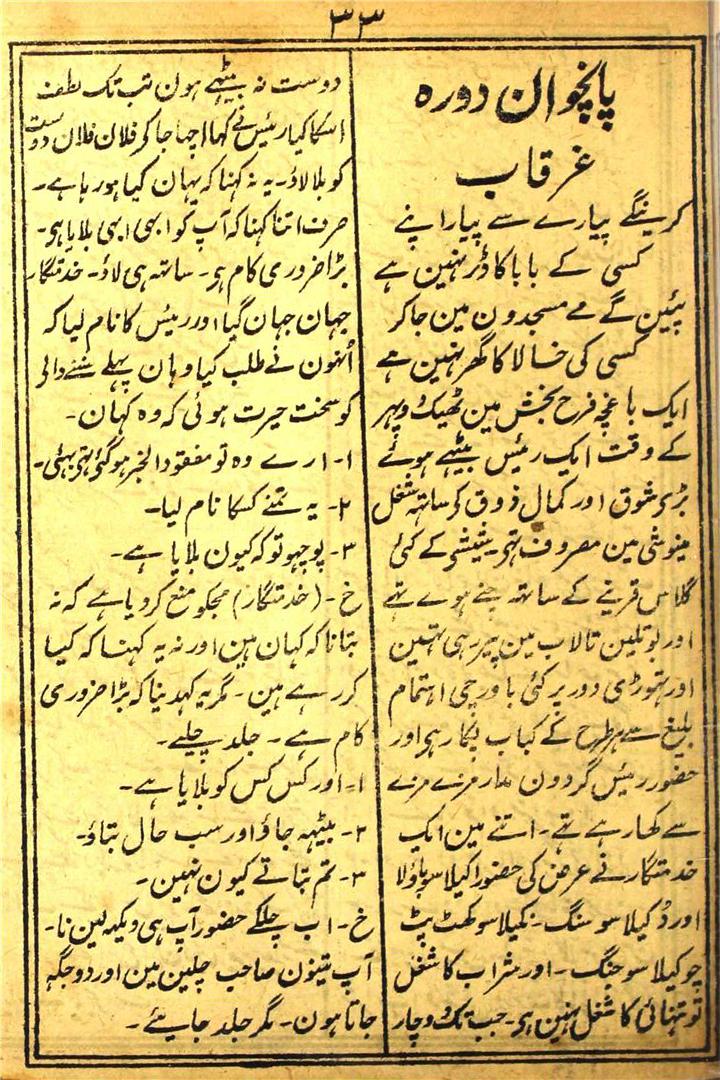 ۳۳
پانچوان دورہ
غرقاب
کرینگے پیارے سے پیار اپنے
کسی کے بابا کا ڈر نہین ہے
پئین گے مے مسجدون مین جا کر
کسی کی خالا کا گھر نہین ہے
ایک باغچہ فرح بخش مین ٹھیک دوپہر
کے وقت ایک رئیس بیٹھے ہوئے
بڑی شوق اور کمال ذوق کے ساتھ شغل
مینوشی مین مصروف تہی۔ شیشی کے کئی
گلاس قرینے کے ساتھ چنے ہوے تہے
اور بوتلین تالاب مین پیر رہی تہین
اور تہوڑی دور پر کئی باورچی اہتمام
بلیغ سے ہر طرح کے کباب پکا رہی اور
حضور رئیس گردون مدار مزے مزے
سے کھا رہے تہے۔ اتنے مین ایک
خدمتگار نے عرض کی حضور اکیلا سو باؤلا
اور دکیلا سو سنگ۔ تکیلا سو کھٹ پٹ
چوکیلا سو جنگ۔ اور شراب کا شغل
تو تنہائی کا شغل نہین ہی۔ جب تک دو چار
دوست نہ بیٹھے ہون تب تک لطف
اسکا کیا رئیس نے کہا اچہا جا کر فلان فلان دوست
کو بلا لاؤ۔ یہ نہ کہنا کہ یہان کیا ہو رہا ہے۔
صرف اتنا کہنا کہ آپ کو ابہی ابہی بلایا ہی۔
بڑا ضروری کام ہو۔ ساتھ ہی لاؤ۔ خدمتگار
جہان جہان گیا اور رئیس کا نام لیا کہ
اُنہون نے طلب کیا وہان پہلے سننے والی
کو سخت حیرت ہوئی کہ وہ کہان۔
۱۔ ارے وہ تو مفقود الخبر ہو گئی تہی بہئی۔
۲۔ یہ تمنے کسکا نام لیا۔
۳۔ پوچہو تو کہ کیون بلایا ہے۔
خ۔ (خدمتگار) مجکو منع کر دیا ہے کہ نہ
بتانا کہ کہان ہین اور نہ یہ کہنا کہ کیا
کر رہے ہین۔ مگر یہ کہدینا کہ بڑا ضروری
کام ہے۔ جلد چلیے۔
۱۔ اور کس کس کو بلایا ہے۔
۲۔ بیٹھ جاؤ اور سب حال بتاؤ۔
۳۔ تم بتاتے کیون نہین۔
خ۔ اب چلکے حضور آپ ہی دیکھ لین نا۔
آپ تینون صاحب چلین مین اور دو جگہ
جاتا ہون۔ مگر جلد جایئے۔